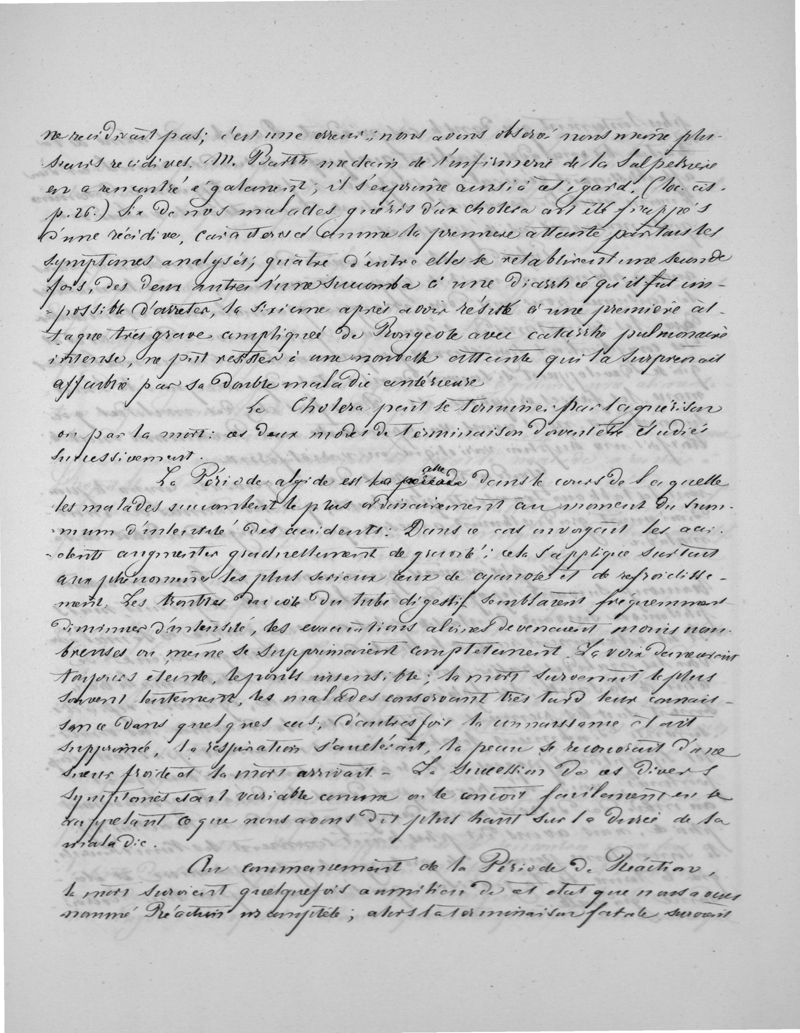 ne recidivait pas; c'est une erreur; nous avons observé nous même plu-
sieurs recidives. M. Barth medecin de l'infirmerie de la Salpetriere
en a rencontré également; il s'exprime ainsi à cet égard. (loc. cit.
p. 26.) Six de nos malades guéris du choléra ont été frappés
d'une récidive, caractérisée comme la première atteinte par tous les
symptômes analysés; quatre d'entre elles se rétablirent une seconde
fois, des deux autres l'une succomba à une diarrhée qu'il fut im-
-possible d'arreter, la sixieme après avoir résisté à une première at-
taque tres grave compliquée de Rougeole avec catarrhe pulmonaire
intense, ne put resister à une nouvelle atteinte qui la surprenait
affaiblie par sa double maladie antérieure
Le Cholera peut se terminer par la guérison
ou par la mort: ces deux modes de terminaison doivent être étudiés
successivement.
La Période algide est celle dans le cours de laquelle
les malades succombent le plus ordinairement au moment du sum-
mum d'intensité des accidents: Dans ce cas on voyait les acci-
-dents augmenter graduellement de gravité; cela s'applique surtout
aux phénomènes les plus serieux ceux de cyanose et de refroidisse-
ment. Les troubles du côté du tube digestif semblaient fréquemment
diminuer d'intensité, les evacuations alvines devenaient moins nom-
breuses ou meme se supprimaient completement. La voix demeurait
toujours éteinte, le pouls insensible; la mort survenait le plus
souvent lentement, les malades conservant très tard leur connais-
sance dans quelques cas, d'autres fois la connaissance était
supprimée, la respiration s'accélérait, la peau se recouvrait d'une
sueur froide et la mort arrivait – La succession de ces divers
symptomes était variable comme on le conçoit facilement en se
rappelant ce que nous avons dit plus haut sur la durée de la
maladie.
Au commencement de la Période de Réaction,
la mort survient quelquefois au milieu de cet etat que nous avons
nommé Réaction incomplète; alors la terminaison fatale survenait